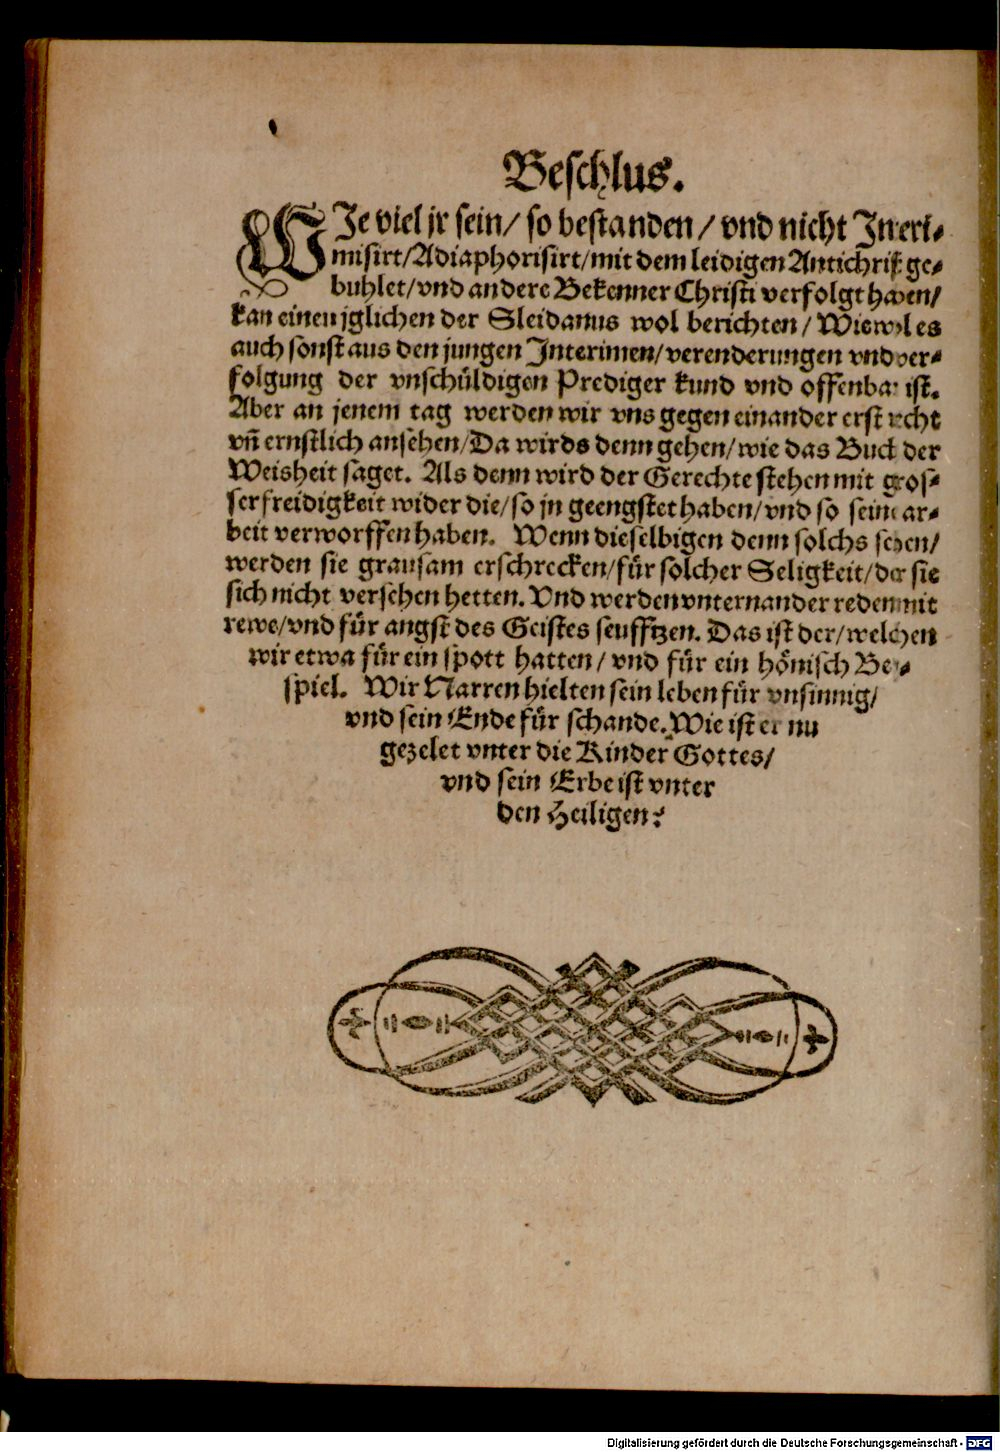 Beschlus.
WIe viel jr sein/ so bestanden/ vnd nicht Interi-
misirt/Adiaphorisirt/mit dem leidigen Antichrist ge-
buhlet/vnd andere Bekenner Christi verfolgt haben/
kan einen jglichen der Sleidanus wol berichten/ Wiewol es
auch sonst aus den jungen Interimen/verenderungen vnd ver-
folgung der vnschüldigen Prediger kund vnd offenbar ist.
Aber an jenem tag werden wir vns gegen einander erst recht
vñ ernstlich ansehen/Da wirds denn gehen/wie das Buch der
Weisheit saget. Als denn wird der Gerechte stehen mit gros-
ser freidigkeit wider die/so jn geengstet haben/vnd so seine ar-
beit verworffen haben. Wenn dieselbigen denn solchs sehen/
werden sie grausam erschrecken/für solcher Seligkeit/der sie
sich nicht versehen hetten. Vnd werden vnternander reden mit
rewe/vnd für angst des Geistes seufftzen. Das ist der/welchen
wir etwa für ein spott hatten/ vnd für ein hönisch Bey-
spiel. Wir Narren hielten sein leben für vnsinnig/
vnd sein Ende für schande. Wie ist er nu
gezelet vnter die Kinder Gottes/
vnd sein Erbe ist vnter
den Heiligen?
Digitalisierung gefördert durch die Deutsche Forschungsgemeinschaft - DFG